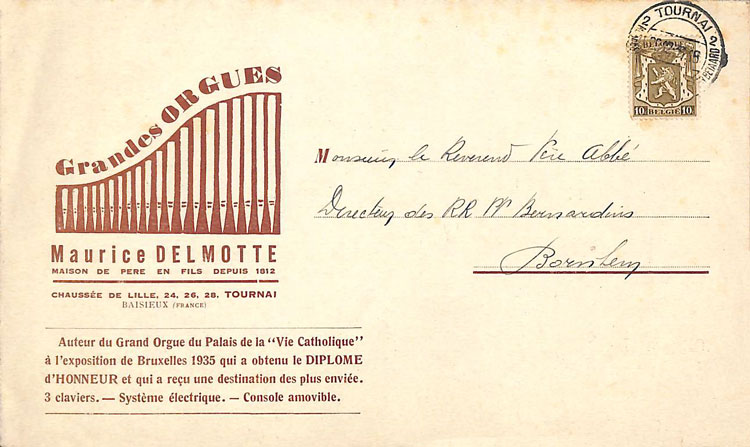 Grandes ORGUES
Maurice DELMOTTE
MAISON DE PERE EN FILS DEPUIS 1812
CHAUSSÉE DE LILLE, 24, 26, 28. TOURNAI
BAISIEUX (FRANCE)
Auteur du Grand Orgue du Palais de la “Vie Catholique”
à l'exposition de Bruxelles 1935 qui a obtenu le DIPLOME
d'HONNEUR et qui a reçu une destination des plus enviée.
3 claviers. — Système électrique. — Console amovible.
2 TOURNAI 2
10 BELGIË 10
Monsieur le Reverend Père Abbé
Directeur des RR PP Bernardins
Bornhem